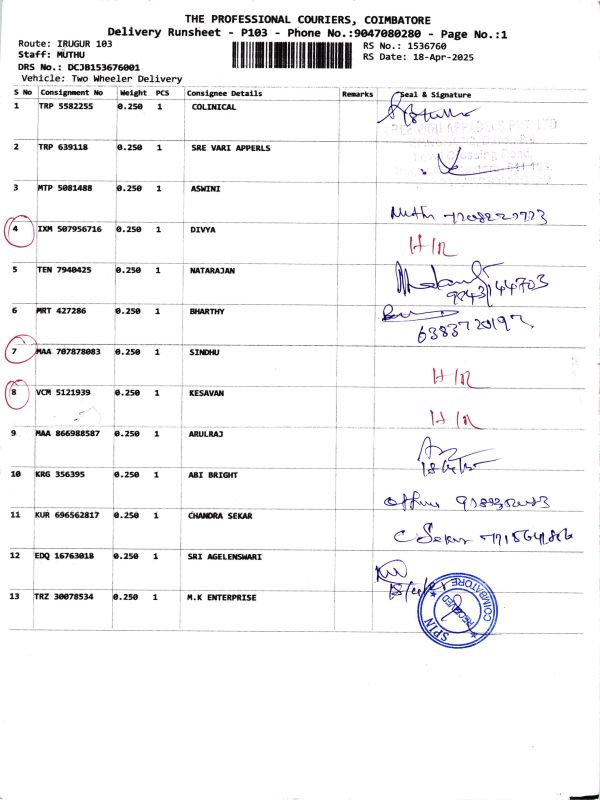 THE PROFESSIONAL COURIERS, COIMBATORE
Delivery Runsheet - P103 - Phone No.:9047080280 - Page No.:1
Route: IRUGUR 103
RS No.: 1536760
Staff: MUTHU
RS Date: 18-Apr-2025
DRS No.: DCJB153676001
Vehicle: Two Wheeler Delivery
S No Consignment No Weight PCS Consignee Details Remarks Seal & Signature
1 TRP 5582255 0.250 1 COLINICAL
2 TRP 639118 0.250 1 SRE VARI APPERLS
3 MTP 5081488 0.250 1 ASWINI
4 IXM 507956716 0.250 1 DIVYA H/R
5 TEN 7940425 0.250 1 NATARAJAN 9843144703
6 MRT 427286 0.250 1 BHARTHY 6383720197
7 MAA 707878083 0.250 1 SINDHU H/R
8 VCM 5121939 0.250 1 KESAVAN H/R
9 MAA 866988587 0.250 1 ARULRAJ
10 KRG 356395 0.250 1 ABI BRIGHT
11 KUR 696562817 0.250 1 CHANDRA SEKAR C Sekar
12 EDQ 16763018 0.250 1 SRI AGELENSWARI
13 TRZ 30078534 0.250 1 M.K ENTERPRISE
SPIN COIMBATORE
RECEIVED